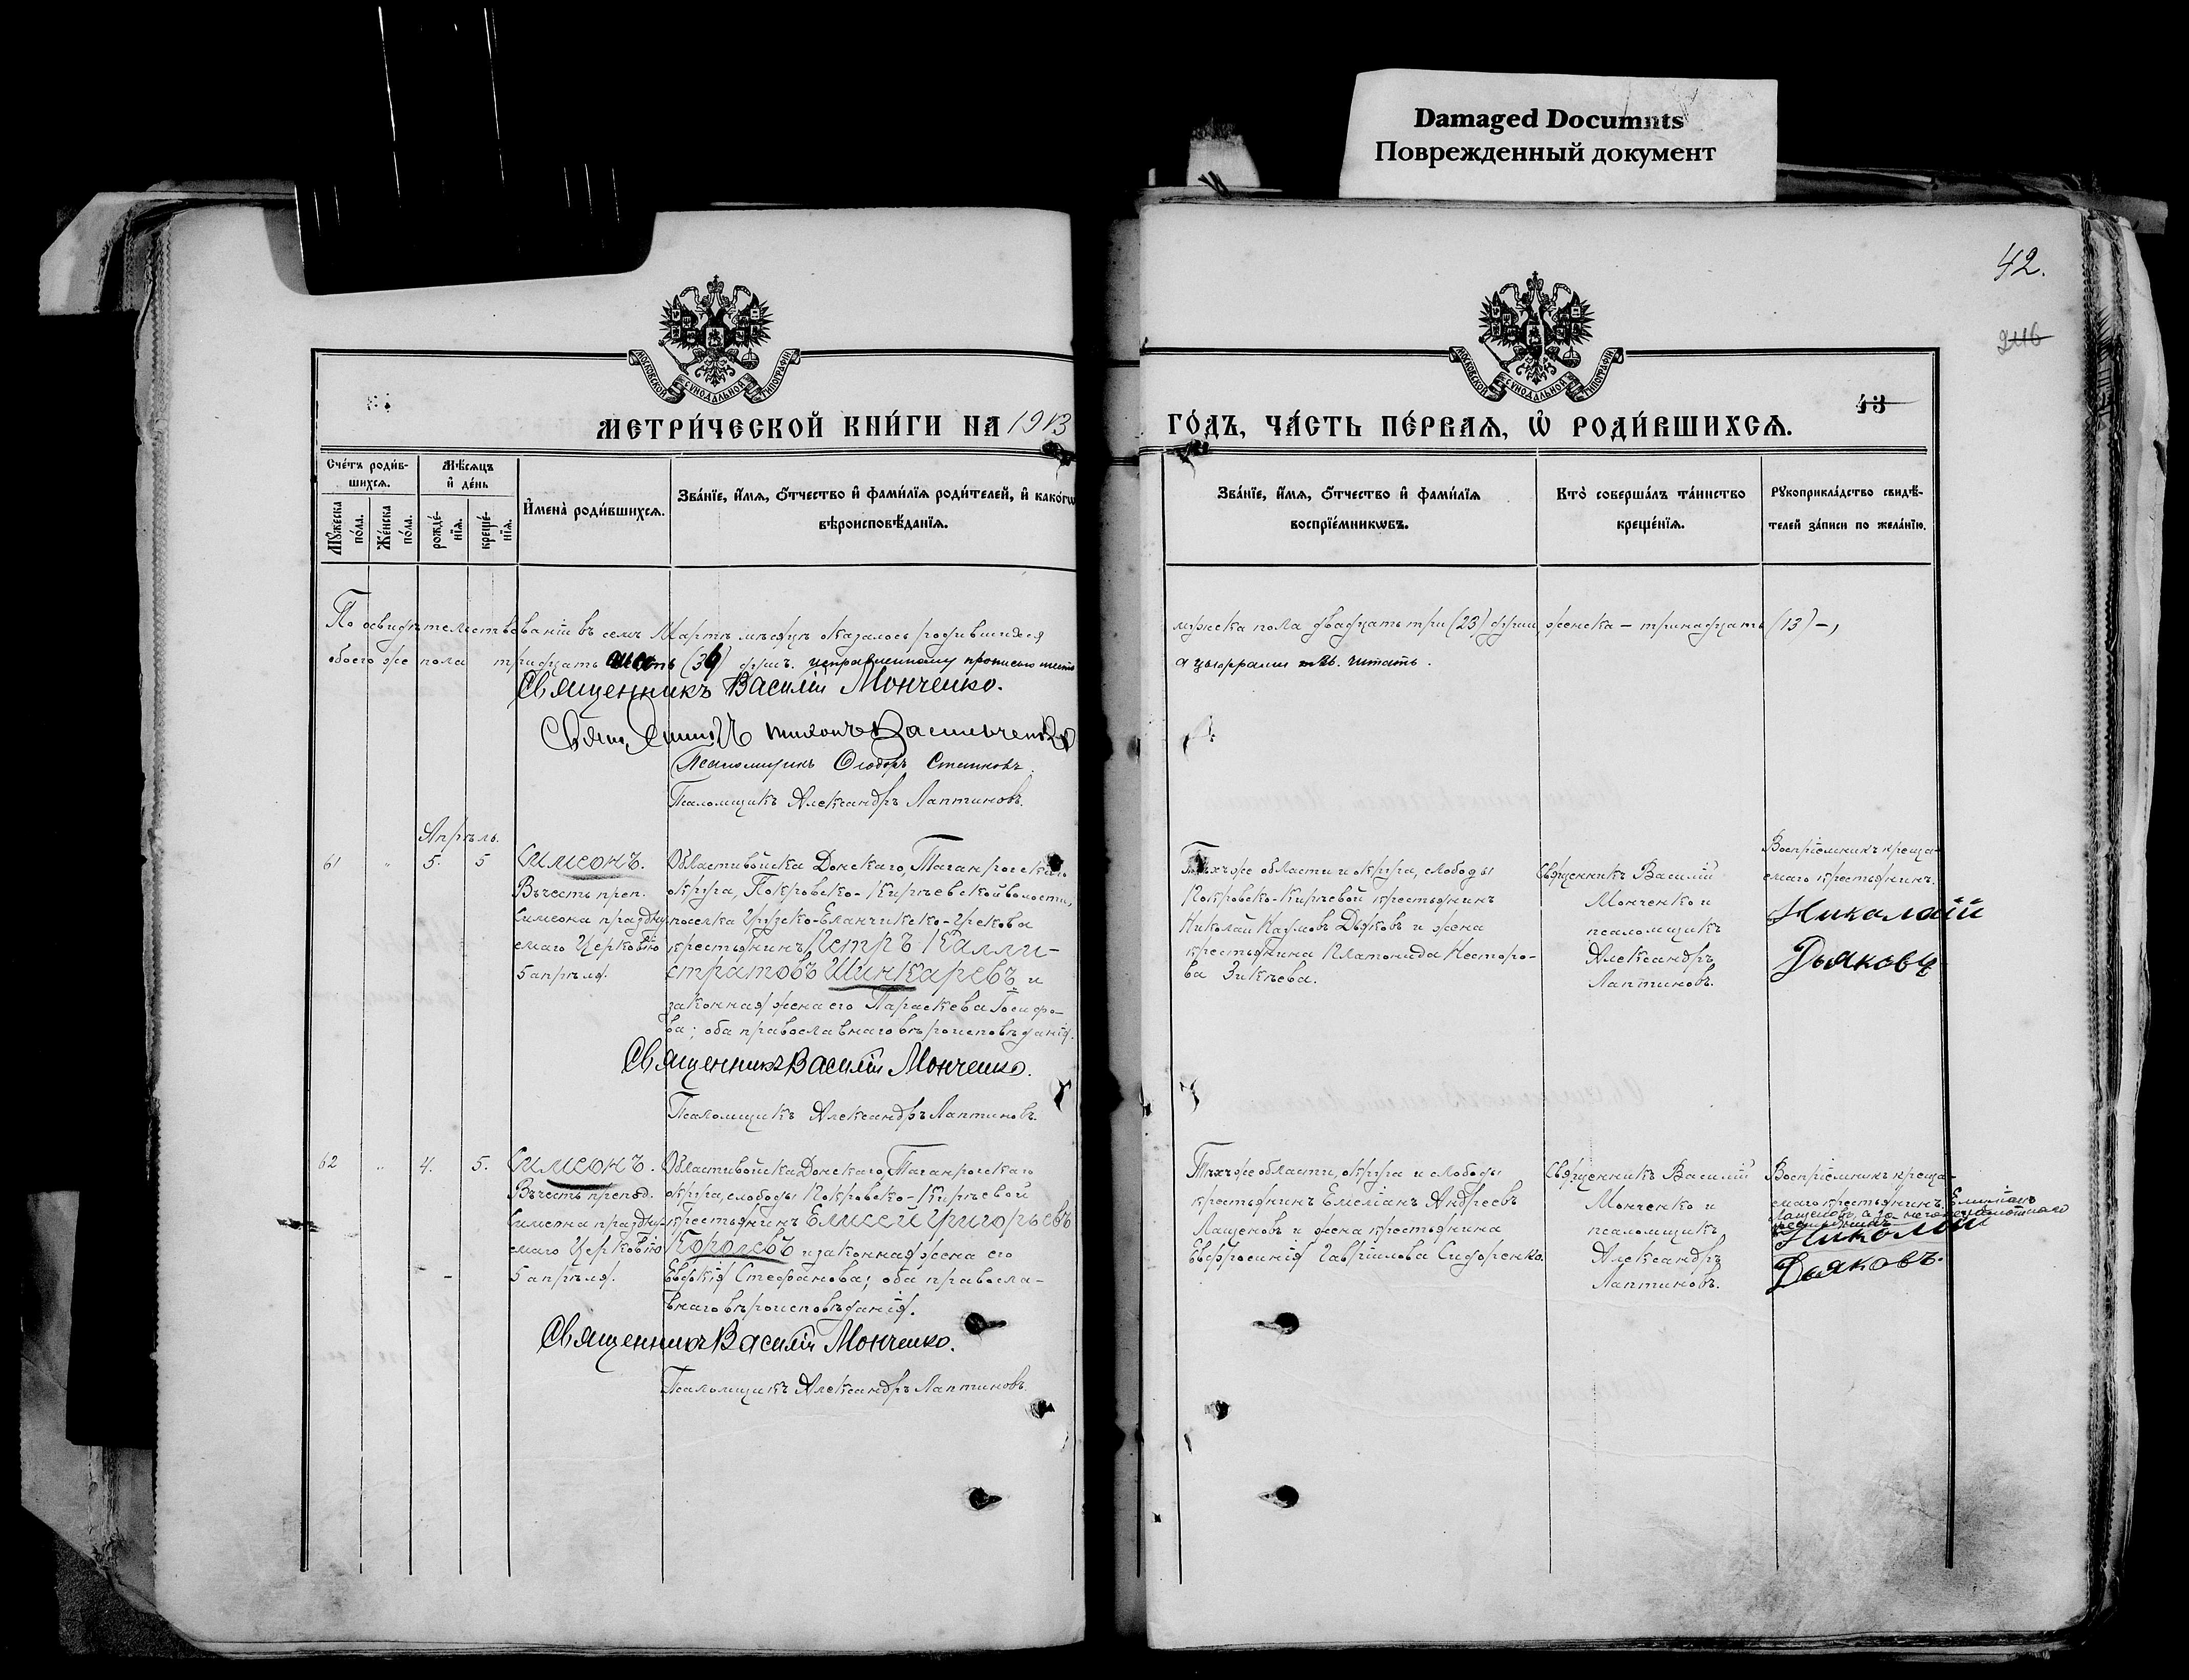 Damaged Documnts
Поврежденный документ
42.
МОСКОВСКОЙ СѴНОДАЛЬНОЙ ТИПОГРАФІИ
МОСКОВСКОЙ СѴНОДАЛЬНОЙ ТИПОГРАФІИ
43
МЕТРИ́ЧЕСКОЙ КНИ́ГИ НА 1913
ГО́ДЪ, ЧА́СТЬ ПЕ́РВАЯ, Ѡ҆ РОДИ́ВШИХСЯ.
Сче́тъ роди́в-
шихся.
Мꙋжеска
по́ла.
Же́нска
по́ла.
Мѣ́сяцъ
и҆ де́нь
рожде́-
нїя.
креще́-
нїя.
И҆мена̀ роди́вшихся.
Зва́нїе, и҆́мя, ѻ҆́тчество и҆ фами́лїя роди́телей, и҆ како́гѡ
вѣроисповѣ́данїя.
Зва́нїе, и҆́мя, ѻ҆́тчество и҆ фами́лїя
воспрїе́мникѡвъ.
Кто̀ соверша́лъ та́инство
креще́нїя.
Рꙋкоприкла́дство свидѣ́-
телей за́писи по жела́нїю.
По освидѣтельствованіи въ семъ Мартѣ мѣсяцѣ оказалось родившихся
мужеска пола двадцать три (23) души, женска – тринадцать (13) –,
обоего же пола тридцать шесть (36) душъ. исправленному прописью шесть
а цыфрами читать.
Священникъ Василій Монченко.
Псаломщикъ Ѳеодоръ
Псаломщикъ Александръ Лаптиновъ.
Апрѣль.
61 " 5. 5
Симеонъ.
Въ честь преп.
Симеона праздну-
емаго Церковію
5 апрѣля.
Области войска Донскаго, Таганрогскаго
округа, Покровско-Кирѣевской волости,
поселка Грузско-Еланчикско-Грекова
крестьянинъ Петръ Калли-
стратовъ Шинкаревъ и
законная жена его Параскева Іосифо-
ва; оба православнаго вѣроисповѣданія.
Священникъ Василій Монченко.
Псаломщикъ Александръ Лаптиновъ.
Тѣхъ же области и округа, слободы
Покровско-Кирѣевой крестьянинъ
Николай Наумовъ Дьяковъ и жена
крестьянина Платонида Несторо-
ва Зикѣева.
Священникъ Василій
Монченко и
псаломщикъ
Александръ
Лаптиновъ.
Воспріемникъ креща-
емаго крестьянинъ
Николай
Дьяковъ
62 " 4. 5.
Симеонъ.
Въ честь препод.
Симеона праздну-
емаго Церковію
5 апрѣля.
Области войска Донскаго, Таганрогскаго
округа, слободы Покровско-Кирѣевой
крестьянинъ Елисей Григорьевъ
Королевъ и законная жена его
Евдокія Стефанова; оба правосла-
внаго вѣроисповѣданія.
Священникъ Василій Монченко.
Псаломщикъ Александръ Лаптиновъ.
Тѣхъ же области, округа и слободы
крестьянинъ Емеліанъ Андреевъ
Лащеновъ и жена крестьянина
Евфросинія Гавріилова Сидоренко.
Священникъ Василій
Монченко и
псаломщикъ
Александръ
Лаптиновъ.
Воспріемникъ креща-
емаго крестьянинъ Емеліанъ
Лащеновъ, а за него неграмотнаго
Николай
Дьяковъ.